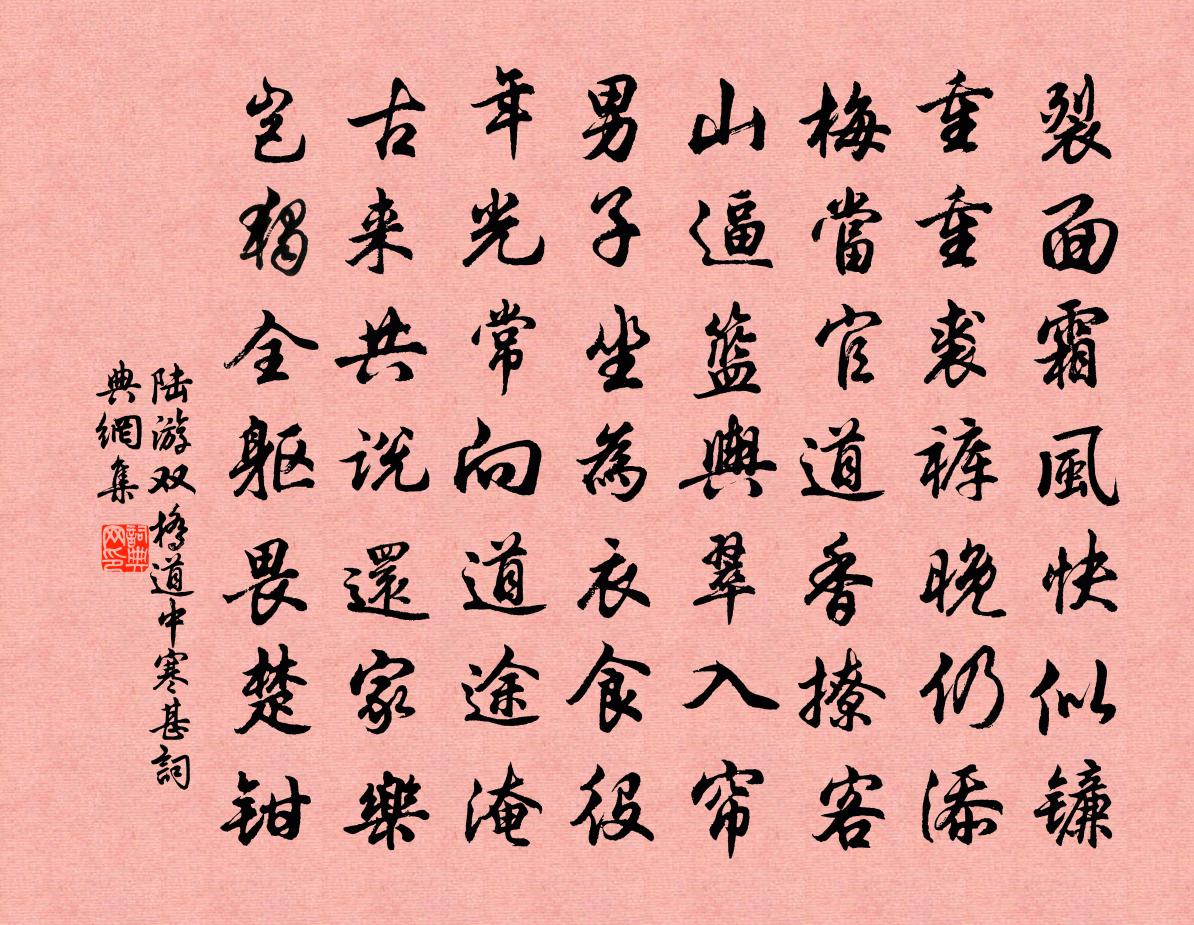 裂面霜風快似镰
重重裘裤晚仍添
梅當官道香撩客
山逼籃輿翠入帘
男子坐為衣食役
年光常向道途淹
古来共说還家樂
岂獨全躯畏楚钳
陆游双橋道中寒甚詞
典網集
詞典
网印